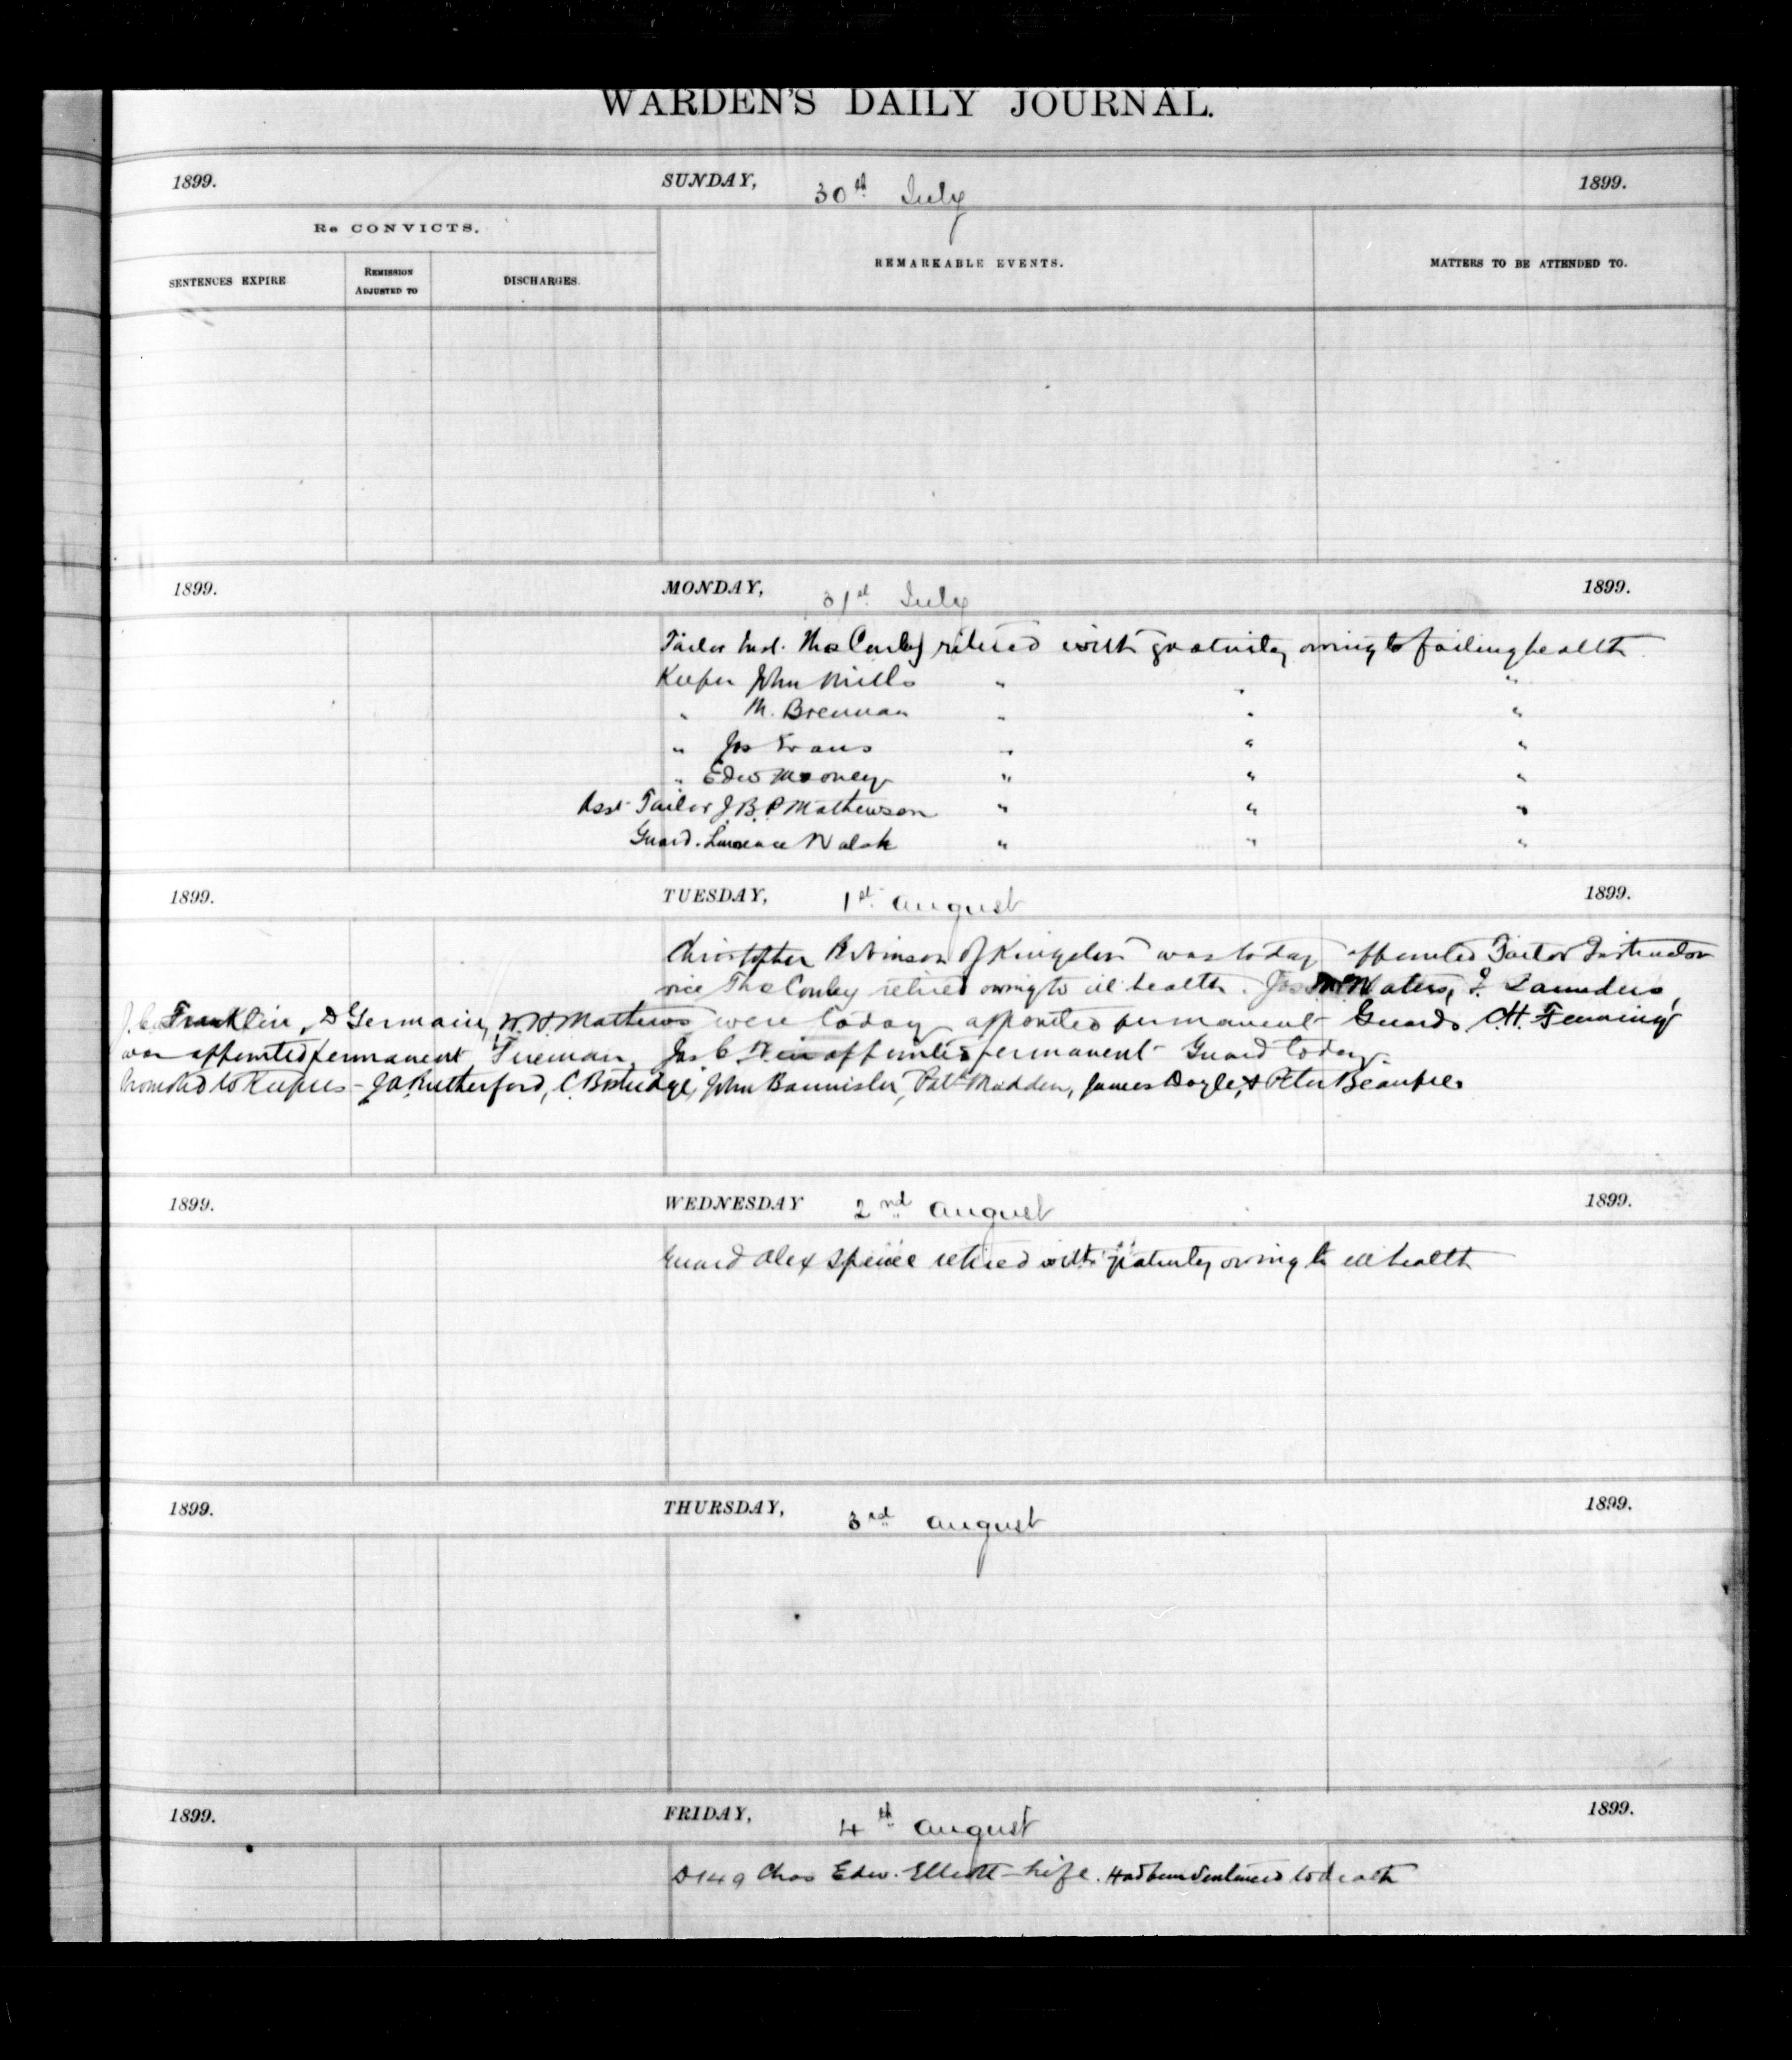 WARDEN'S DAILY JOURNAL.
1899. SUNDAY, 30th July 1899.
Re CONVICTS.
REMARKABLE EVENTS. MATTERS TO BE ATTENDED TO.
SENTENCES EXPIRE REMISSION ADJUSTED TO DISCHARGES.
1899. MONDAY, 31st July 1899.
Tailor Inst. Thos Conley retired with gratuity owing to failing health
Keeper John Mills " " "
" M. Brennan " " "
" Jas Evans " " "
" Edw Mooney " " "
Asst Tailor J. B. P. Mathewson " " "
Guard. Lawrence Walsh " " "
1899. TUESDAY, 1st August 1899.
Christopher Robinson of Kingston was today appointed Tailor Instructor
vice Thos Conley retired owing to ill health. Jas Waters, Saunders,
J. C. Franklin, D Germain, W. H. Mathews were today appointed permanent Guards C. H. Fenning
was appointed permanent Fireman, Jas C. Weir appointed permanent Guard today.
Promoted to Keepers - J A Rutherford, C. Bostridge, John Bannister, Patk Madden, James Doyle, & Peter Beaupre
1899. WEDNESDAY 2nd August 1899.
Guard Alex Spence retired with gratuity owing to ill health
1899. THURSDAY, 3rd August 1899.
1899. FRIDAY, 4th August 1899.
D149 Chas Edw. Elliott - Life. Had been sentenced to death